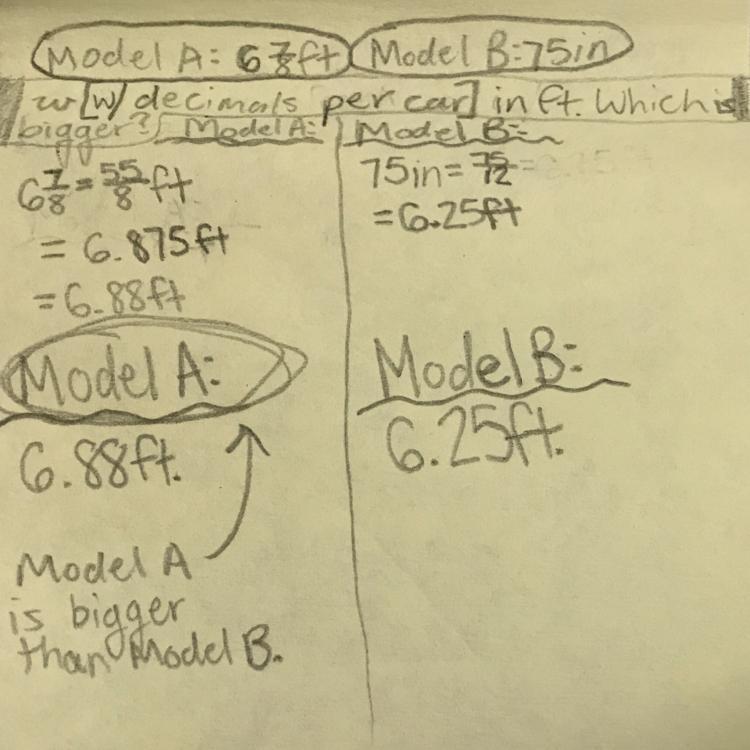 Model A: 6 7/8 ft Model B: 75in
w[w/ decimals per car] in ft. Which is
bigger? Model A: Model B:
6 7/8 = 55/8 ft
= 6.875ft
= 6.88ft
75in = 75/12 =
= 6.25ft
Model A:
6.88ft.
Model A
is bigger
than Model B.
Model B:
6.25ft.